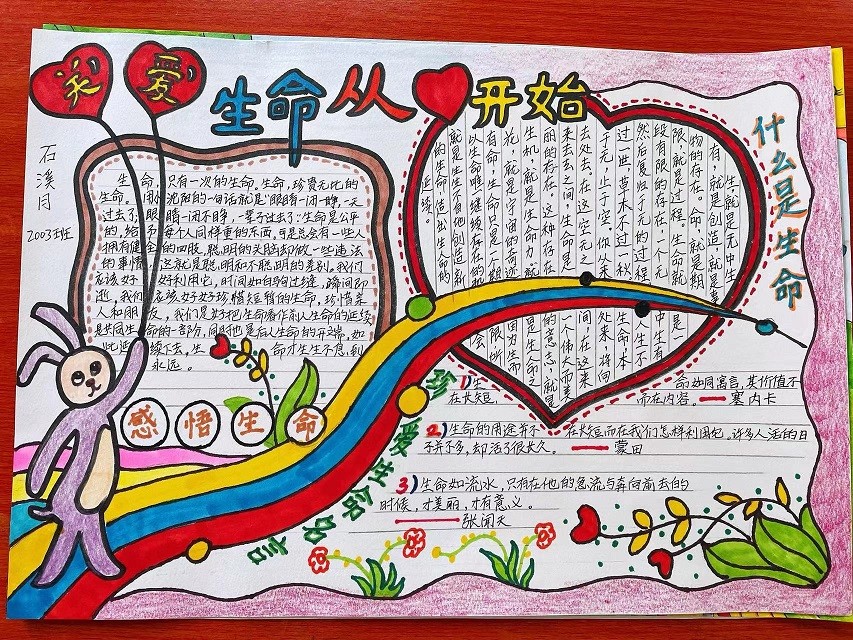 关爱
生命从
开始
什么是生命
石溪月
2003班
生命,只有一次的生命。生命,珍贵无比的
生命。用小沈阳的一句话就是"眼睛一闭一睁,一天
过去了,眼睛一闭不睁,一辈子过去了"生命是公平
的,给予每个人同样重的东西,可是总会有一些人
拥有健全的四肢,聪明的头脑却做一些违法
的事情,这就是聪明和不聪明的差别。我们
应该好好利用它,时间如白驹过缝,瞬间即
逝,我们应该好好珍惜短暂的生命,珍惜亲
人和朋友,我们是好把生命看作亲人生命的延续
是共同生命的一部份,同时也是后人生命的开端,如
此延续下去,生命才生生不息,到
永远。
生,就是无中生
有,就是创造,就是事
物的存在。命,就是期
限,就是过程。生命就是一
段有限的存在,一个无中生有
然后复归于无的过程。人生不
过一世,草木不过一秋。生命本
于无,止于空。你从来处来,将向
去处去。在这空无之间,在这来
来去去之间,生命是一个伟大而美
丽的存在。这种存在
生机,就是生命力,就
花,就是宇宙的奇迹
有命,生命只是一期
以生命唯继续存在的机会
就是生生不自他创造新
的生命,造出生命的
延续。
感悟生命
珍爱生命名言
1)生命如同寓言,其价值不
在长短,而在内容。——塞内卡
2)生命的用途并不在长短而在我们怎样利用它。许多人活的日
子并不多,却活了很长久。——蒙田
3)生命如流水,只有在他的急流与奔向前去的
时候,才美丽,才有意义。
——张闻天